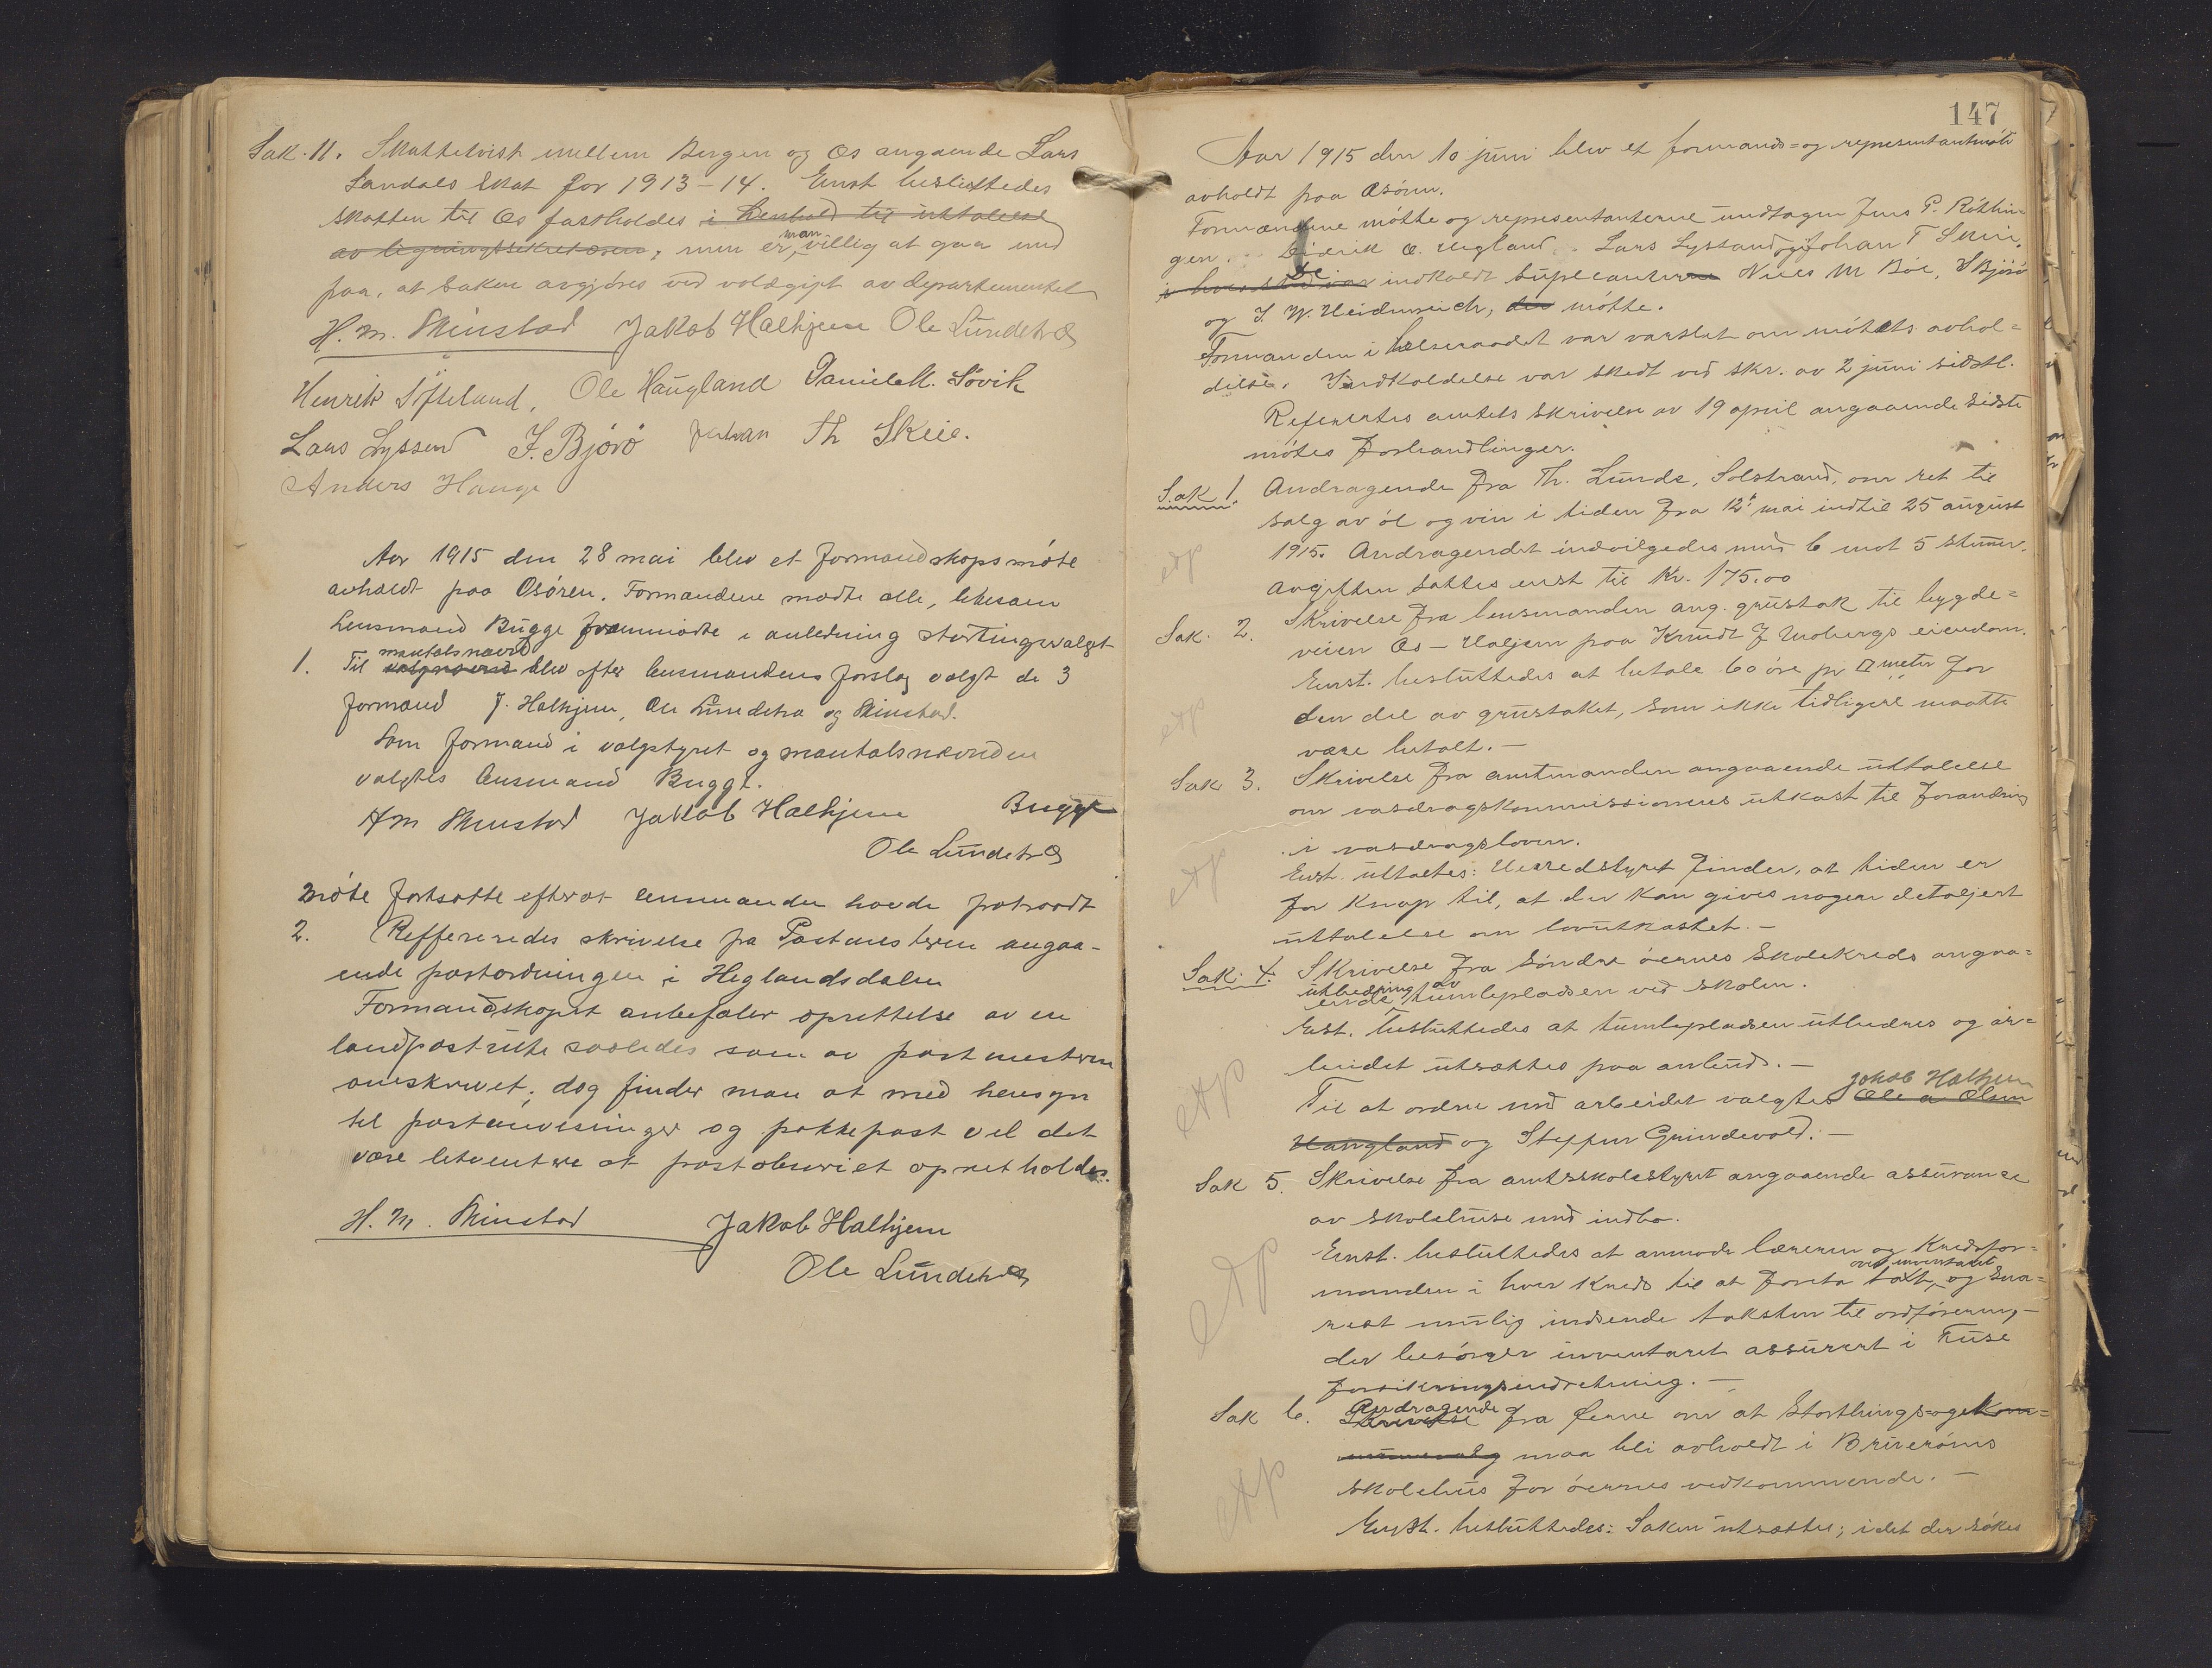 Sak. 11. Skattetvist mellem Bergen og Os angaaende Lars
Sandals skat for 1913-14. Enst. besluttedes
skatten til Os fastholdes i henhold til uttalelse
av ligningssekretæren, men er man villig at gaa ind
paa, at saken avgjøres ved voldgift av departementet
H. M. Skinstad Jakob Halhjem Ole Lundetræ
Henrik Søfteland, Ole Haugland Daniel M. Søvik
Lars Lyssand J. Bjørø Johan Th Skeie.
Anders Hauge
Aar 1915 den 28 mai blev et formandskapsmøte
avholdt paa Osøren. Formændene mødte alle, likesom
Lensmand Bugge fremmødte i anledning stortingsvalget
1. Til valgnævnd mantalsnævnd blev efter lensmandens forslag valgt de 3
formænd J. Halhjem, Ole Lundetræ og Skinstad.
Som formand i valgstyret og mantalsnævnden
valgtes lensmand Bugge.
H M Skinstad Jakob Halhjem Bugge
Ole Lundetræ
Møte fortsatte efterat lensmanden havde fratraadt
2. Reffereredes skrivelse fra Postmesteren angaa-
ende postordningen i Heglandsdalen
Formandskapet anbefaler oprettelse av en
landpostrute saaledes som av postmesteren
omskrevet; dog finder man at med hensyn
til postanvisninger og pakkepost vil det
være letvintere at postaabneriet opretholdes.
H. M. Skinstad Jakob Halhjem
Ole Lundetræ
147
Aar 1915 den 10 juni blev et formands= og representantmøte
avholdt paa Osøren.
Formændene møtte og representanterne undtagen Jens P. Røttin=
gen, Diderik O. Hegland, Lars Lyssand og Johan T Skeie,
i hvis sted var De indkaldte suppleanterne Niels M Bøe, J Bjørø
og J. W. Heidenreich, der møtte.
Formanden i helseraadet var varslet om møtets avhol=
delse. Indkaldelse var skedt ved skr. av 2 juni sidstl.
Refereertes amtets skrivelse av 19 april angaaende sidste
møtes forhandlinger.
Sak 1. Andragende fra Th. Lunde, Solstrand, om ret til
salg av øl og vin i tiden fra 12te mai indtil 25 august
1915. Andragendet indvilgedes med 6 mot 5 stemmer.
Avgiften sattes enst til Kr. 175.00
Sak. 2. Skrivelse fra lensmanden ang. grustak til bygde=
veien Os - Haljem paa Knudt J Mobergs eiendom.
Enst. besluttedes at betale 60 øre pr □ meter for
den del av grustaket, som ikke tidligere maatte
være betalt. -
Sak 3. Skrivelse fra amtmanden angaaende uttalelse
om vasdragskommissionens utkast til forandring
i vasdragsloven.
Enst. uttaltes: Herredstyret finder, at tiden er
for knap til, at der kan gives nogen detaljert
uttalelse om lovutkastet. -
Sak. 4. Skrivelse fra Søndre øernes skolekreds angaa=
ende utbedring av tumlepladsen ved skolen.
Enst. besluttedes at tumlepladsen utbedres og ar=
beidet utsættes paa anbud. -
Til at ordne med arbeidet valgtes Ole a Olsen Jakob Halhjem
Haugland og Steffen Grindevold. -
Sak 5. Skrivelse fra amtsskolestyret angaaende assurance
av skolehuse med indbo.
Enst. besluttedes at anmode læreren og kredsfor=
manden i hver kreds til at foreta takst over inventaret, og sna=
rest mulig indsende taksten til ordføreren, -
der besørger inventaret assurert i Fuse
forsikringsindretning. -
Sak 6. Skrivelse Andragende fra øerne om at Storthings= og kom=
munevalg maa bli avholdt i Bruerøens
skolehus for øernes vedkommende. -
Enst. besluttedes: Saken utsættes, idet der søkes